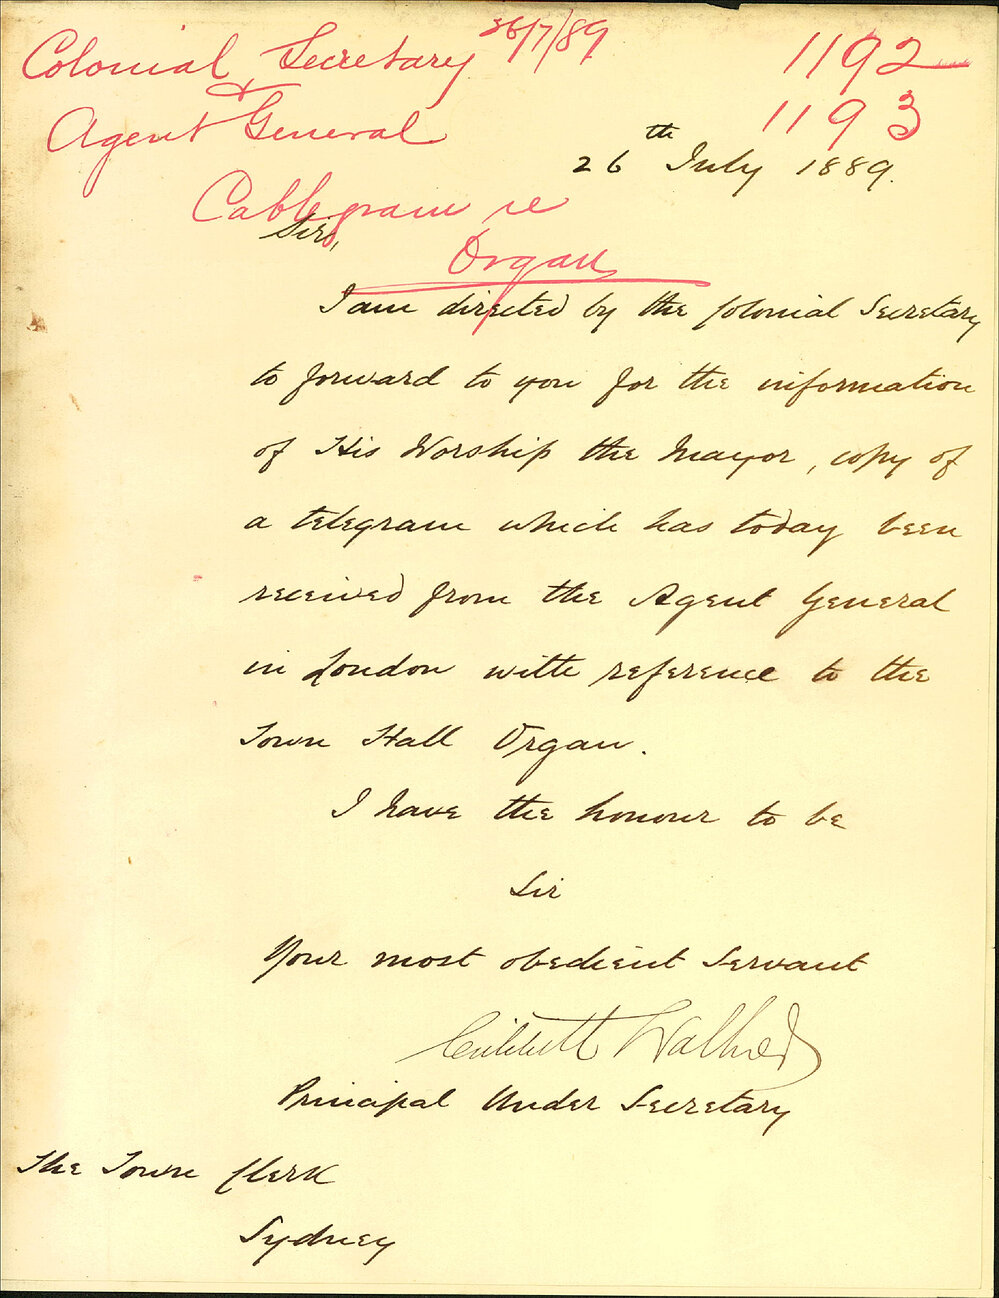 Colonial Secretary 26/7/89
&
Agent General
1192
1193
26th July 1889.
Cablegram re
Organ
Sir,
I am directed by the Colonial Secretary
to forward to you for the information
of His Worship the Mayor, copy of
a telegram which has today been
received from the Agent General
in London with reference to the
Town Hall Organ.
I have the honour to be
Sir
Your most obedient Servant
Critchett Walker
Principal Under Secretary
The Town Clerk
Sydney